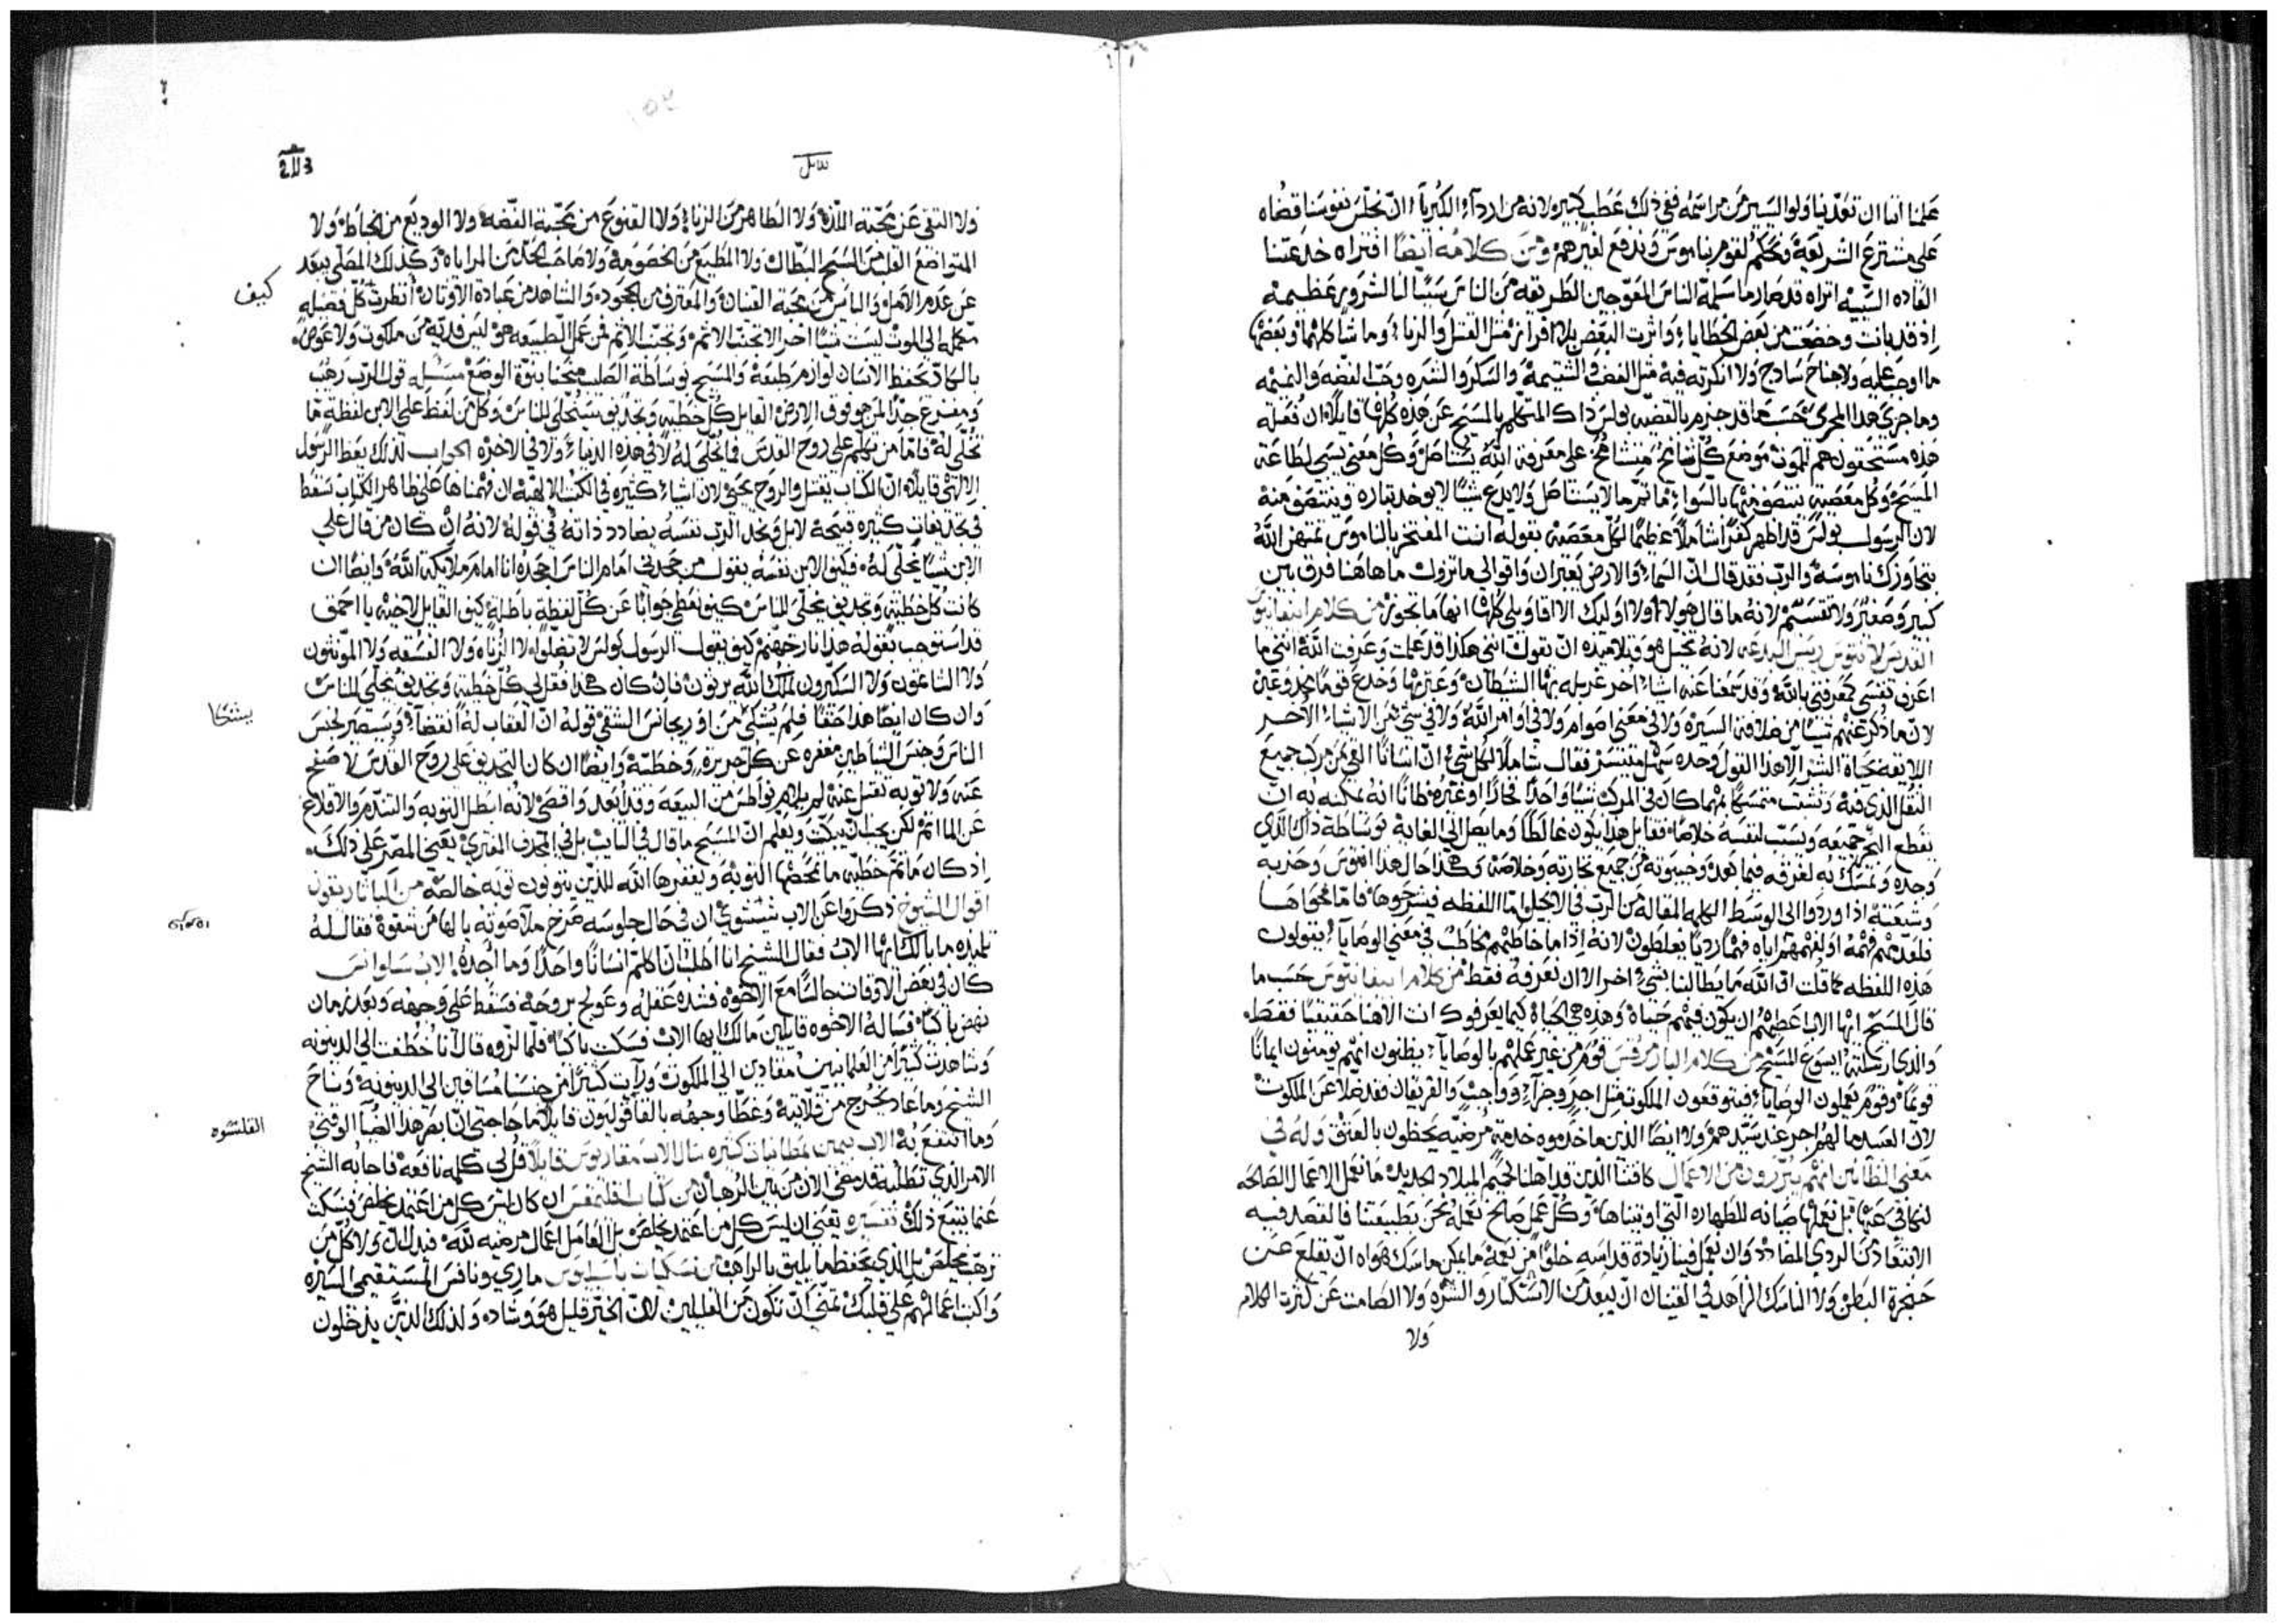 علمنا اننا ان تعدينا ولو اليسير من مراسمه ففي ذلك عطب كبير ولانه من اردآء الكبرياء ان نجلس نفوسنا قضاه
على مشترع الشريعة ونحكم لقوم بناموس وندفع لغيرهم ومن كلامه ايضًا افتراه خدعتنا
العاده السيئه اتراه قد صار ما سلمه الناس المعوجين الطريقه من الناس سببًا لنا لشرور عظيمه
اذ قد بانت وخضعت من بعض الخطايا واثرت البعض بلا افراز مثل القتل والزنا وما شاكلهما وبعضها
ما اوجب عليه ولا جناح ساذج ولا انكرته فيه مثل الغضب والشتيمة والسكر والشره وحب الفضه والنميمه
وما جرى هذا المجرى حسبما قد جزم بالقضيه بولس ذاك المتكلم بالمسيح عن هذه كلها قايلًا ان فعلة
هذه مستحقون هم الموت موضع كل شامخ متشامخ على معرفة الله يستاصل وكل معنى يسبى لطاعة
المسيح وكل معصية ينتصف منها بالسواء فما ثم ما لا يستاصل ولا يدع شيئًا لا يوخذ بثاره وينتصف منه
لان الرسول بولس قد اظهر كفرًا شاملًا عظيمًا لكل معصية بقوله انت المفتخر بالناموس تمتهن الله
بتجاوزك ناموسه والرب فقد قال ان السماء والارض يعبران واقوالي ما تزول ما هاهنا فرق بين
كبير وصغير ولا تقسيم لانه ما قال هولاء ولا اوليك الا اقاويلي كلها انها ما تجوز من كلام ابيفانيوس
القديس لانتيوس ريس البدعه لانه يخيل هو وتلاميذه ان تقول انني هكذا قد علمت وعرفت الله انني ما
اعرف نفسي كمعرفتي بالله وقد سمعنا عنه اشياء اخر غربله بها الشيطان وغيرها وخدع قومًا مخدوعين
لان ما ذكر عنهم شيئًا من خلافة السيرة ولا في معنى صوام ولا في اوامر الله ولا في شي من الاشياء الاخر
اللايقه بحياة البشر الا هذا القول وحده سهل متيسر فقال شاملًا لكل شي ان انسانًا القي من مركب جميع
الثقل الذي فيه وتشبث متمسكًا مهما كان في المركب شيئًا واحدًا مجدافًا او غيره ظانًا انه يمكنه به ان
يقطع البحر جميعه ويسبب لنفسه خلاصًا فقايل هذا يكون غالطًا وما يصل الى الغاية بوساطة ذاك الذي
وحده وتمسك به لغرقه فيما بعد وخيبوته من جميع تجارته وخلاصه وهكذا حال هذا انتيوس وحزبه
وشيعته اذا وردوا الى الوسط الكلمه المقاله من الرب في الانجيل اما اللفظه فيشرحوها فاما فحواها
فلقد عدمهم فهمه او لفهمهم اياه فهمًا رديًا يغلطون لانه اذا ما خاطبهم مخاطب في معنى الوصايا يقولون
هذه اللفظه كما قلت ان الله ما يطالبنا بشيء اخر الا ان نعرفه فقط من كلام ابيفانيوس حسب ما
قال المسيح ايها الاب اعطهم ان يكون فيهم حياة وهذه هي الحياة كيما يعرفوك انت الالها حقيقيًا فقط
والذي ارسلته ايسوع المسيح من كلام البار مرقس قوم من غير عملهم بالوصايا يظنون انهم يومنون ايمانًا
قويمًا وقوم يعملون الوصايا فيتوقعون الملكوت مثل اجر وجزآء وواجب والفريقان فقد ضلا عن الملكوت
لان العبيد ما لهم اجر عند سيدهم ولا ايضًا الذين ما خدموه خدمة مرضيه يحظون بالعتق وله في
معنى الظانين انهم يتبررون من الاعمال كافتنا الذين قد اهلنا لحميم الميلاد الجديد ما نعمل الاعمال الصالحه
لنكافي عنها بل نعملها صيانه للطهاره التي اوتيناها وكل عمل صالح نعمله نحن بطبيعتنا فالقصد فيه
الابتعاد من الردي المضادد وان يعمل فينا زيادة قداسه خلوًا من نعمة ما يمكن ماسك هواه ان يقلع عن
حنجرة البطن ولا الناسك الزاهد في القنيان ان يبعد من الاستكبار والشره ولا الصامت عن كثرة الكلام
ولا
ولا التقي عن محبة اللذة ولا الطاهر من الزنا ولا القنوع من محبة الفضه ولا الوديع من الخاط ولا
المتواضع القلب من السبح البطال ولا المطيع من الخصومة ولا صاحب الجد من المراياه وكذلك المصلي يبعد
عن عدم الامل والبايس من محبة القنيان والمعترف من الجحود والشاهد من عبادة الاوثان انظرت كل فضيله
مكمله الى الموت ليست شيئًا اخر الا تجنب الاثم وتجنب الاثم فمن عمل الطبيعه هو ليس فديةً من ملكوت ولا عوض
بالكاد يحفظ الانسان لوازم طبيعة والمسيح بوساطة الصليب منحنا بنوة الوضع مسئله قول الرب رهيب
ومفزع جدًا لمن هو فوق الارض القايل كل خطيه وتجديف سيخلى للناس وكل من لفظ على الابن لفظة ما
تخلى له فاما من تكلم على روح القدس فما يخلى له لا في هذه الدنيا ولا في الاخره الجواب لذلك يعظ الرسول
الالهي قايلًا ان الكتاب يقتل والروح يحيي لان اشياء كثيره في الكتب الالهية ان فهمناها على ظاهر الكتاب نسقط
في تجديفات كثيره قبيحة لا بل ونجد الرب نفسه يضادد ذاته في قوله لانه ان كان من قال على
الابن شيئًا يخلى له فكيف الابن نفسه يقول من جحدني امام الناس اجحده انا امام ملايكة الله وايضًا ان
كانت كل خطية وتجديف تخلى للناس كيف نعطي جوابًا عن كل لفظة باطلة كيف القايل لاخيه يا احمق
قد استوجب بقوله هذا نار جهنم كيف يقول الرسول بولس لا تضلوا لا الزناه ولا الفسقه ولا المونثون
ولا الشاتمون ولا السكيرون لملك الله يرثون فان كان هكذا فقل لي كل خطية وتجديف تخلى للناس
وان كان ايضًا هذا حقًا فلم يشتكى من اوريجانس الشقي قوله ان العقاب له انقضآ وسيصير لجنس
الناس وجنس الشياطين مغفره عن كل جريرة وخطية وايضًا ان كان التجديف على روح القدس لا صفح
عنه ولا توبه تقبل عنه لم يلام نواطس من البيعه وقد ابعد واقصي لانه ابطل التوبه والتندم والاقلاع
عن الماثم لكن يجب ان يبكت ويعلم ان المسيح ما قال في التايب بل في المجدف المفتري يعني المصر على ذلك
اذ كان ما ثم خطيه ما تمحضها التوبة ويغفرها الله للذين يتوبون توبه خالصه من الباثاريقون
اقوال الشيوخ ذكروا عن الاب شيشوي ان في حال جلوسه صرخ ملآ صوته يا لها من شقوة فقال له
تلميذه ما بالك ايها الاب فقال الشيخ انا اطلب ان اكلم انسانًا واحدًا وما اجده الاب سلوانس
كان في بعض الاوقات جالسًا مع الاخوة فشده عقله وعولج بروحه فسقط على وجهه وبعد زمان
نهض باكيًا فساله الاخوه قايلين مالك ايها الاب فسكت باكيًا فلما لزوه قال انا خطفت الى الدينونه
وشاهدت كثيرًا من العلمانيين مقادين الى الملكوت ورايت كثيرًا من جنسنا مساقين الى الدينونه وناح
الشيخ وما عاد يخرج من قلايته وغطا وجهه بالقاقوليون قايلًا ما حاجتي ان ابصر هذا الضيآ الوقتي
وما انتفع به الاب بيمين بمطانيات كثيره سال الاب مقاريوس قايلًا قل لي كلمه نافعة فاجابه الشيخ
الامر الذي تطلبه قد مضى الان من بين الرهبان من كتاب اقليمقس ان كان ليس كل من اعتمد يخلص فسكت
عما يتبع ذلك تفسيره يعني ان ليس كل من اعتمد يخلص بل العامل اعمال مرضيه لله فبذلك ولا كل من
ترهب يخلص بل الذي يحفظ ما يليق بالراهب من نسكيات باسيليوس ماري ونافس المستقيمي السيره
واكتب اعمالهم على قلبك تمنى ان تكون من القليلين لان الخير قليل هو وشاذ ولذلك الذين يدخلون
كيف
القلنسوه